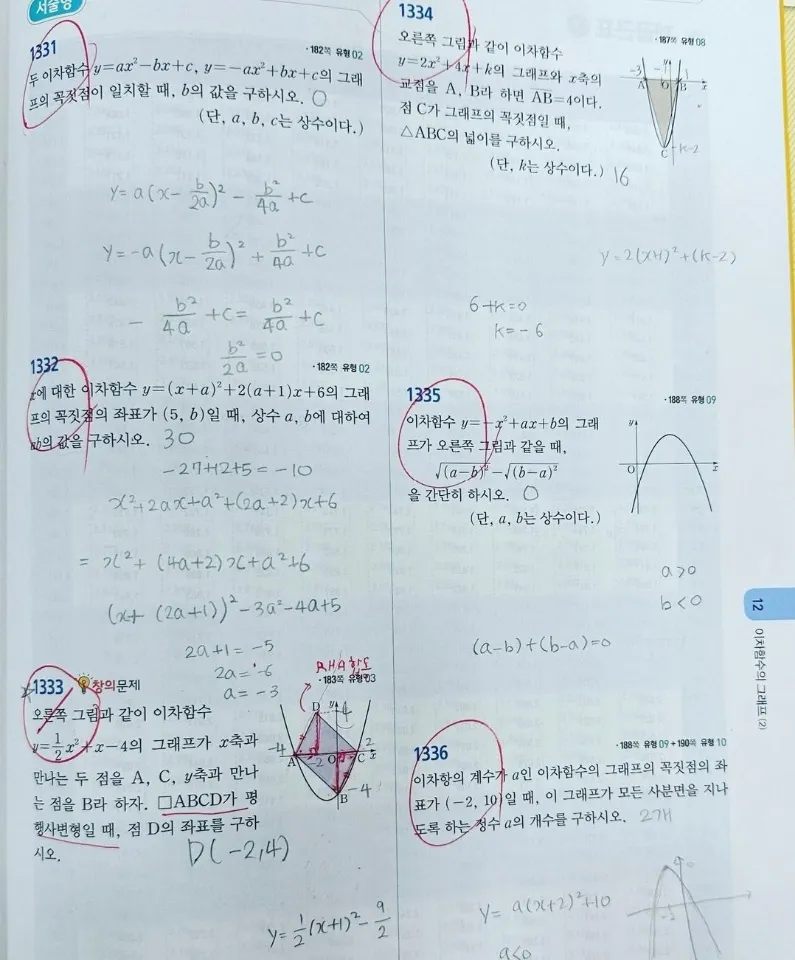 서술형
1331
·182쪽 유형 02
두 이차함수 y=ax²-bx+c, y=-ax²+bx+c의 그래
프의 꼭짓점이 일치할 때, b의 값을 구하시오. 0
(단, a, b, c는 상수이다.)
y=a(x-b/2a)²-b²/4a+c
y=-a(x-b/2a)²+b²/4a+c
-b²/4a+c=b²/4a+c
b²/2a=0
1332
·182쪽 유형 02
x에 대한 이차함수 y=(x+a)²+2(a+1)x+6의 그래
프의 꼭짓점의 좌표가 (5, b)일 때, 상수 a, b에 대하여
ab의 값을 구하시오. 30
-27+12+5=-10
x²+2ax+a²+(2a+2)x+6
=x²+(4a+2)x+a²+6
(x+(2a+1))²-3a²-4a+5
2a+1=-5
2a=-6
a=-3
RHA합동
1333 창의문제
·183쪽 유형 03
오른쪽 그림과 같이 이차함수
y=1/2x²+x-4의 그래프가 x축과
만나는 두 점을 A, C, y축과 만나
는 점을 B라 하자. □ABCD가 평
행사변형일 때, 점 D의 좌표를 구하
시오.
D y 4
-4 A -2 O C 2 x
B -4
D(-2,4)
y=1/2(x+1)²-9/2
1334
·187쪽 유형 08
오른쪽 그림과 같이 이차함수
y=2x²+4x+k의 그래프와 x축의
교점을 A, B라 하면 AB=4이다.
점 C가 그래프의 꼭짓점일 때,
△ABC의 넓이를 구하시오.
(단, k는 상수이다.) 16
-3 -1 y 1
A O B x
C k-2
y=2(x+1)²+(k-2)
6+k=0
k=-6
1335
·188쪽 유형 09
이차함수 y=-x²+ax+b의 그래
프가 오른쪽 그림과 같을 때,
√(a-b)²-√(b-a)²
을 간단히 하시오. 0
(단, a, b는 상수이다.)
y
O x
a>0
b<0
(a-b)+(b-a)=0
12
이차함수의 그래프 ⑵
1336
·188쪽 유형 09+190쪽 유형 10
이차항의 계수가 a인 이차함수의 그래프의 꼭짓점의 좌
표가 (-2, 10)일 때, 이 그래프가 모든 사분면을 지나
도록 하는 정수 a의 개수를 구하시오. 2개
y=a(x+2)²+10
a<0